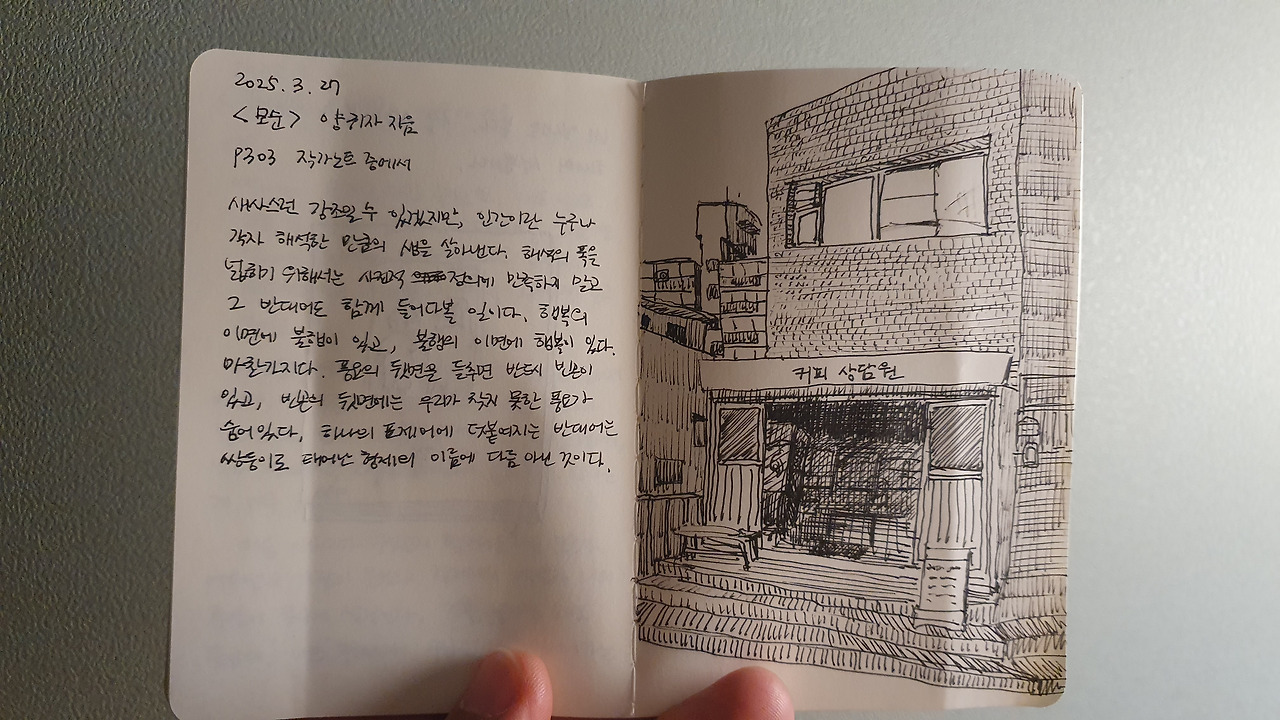 2025. 3. 27
<모순> 양귀자 지음
P303 작가노트 중에서
새삼스런 강조일 수 있겠지만, 인간이란 누구나
각자 해석한 만큼의 생을 살아낸다. 해석의 폭을
넓히기 위해서는 사전적 정의에 만족하지 말고
그 반대어도 함께 들여다볼 일이다. 행복의
이면에 불행이 있고, 불행의 이면에 행복이 있다.
마찬가지다. 풍요의 뒷면을 들추면 반드시 빈곤이
있고, 빈곤의 뒷면에는 우리가 찾지 못한 풍요가
숨어있다. 하나의 표제어에 덧붙여지는 반대어는
쌍둥이로 태어난 형제의 이름에 다름 아닌 것이다.
커피 상담원